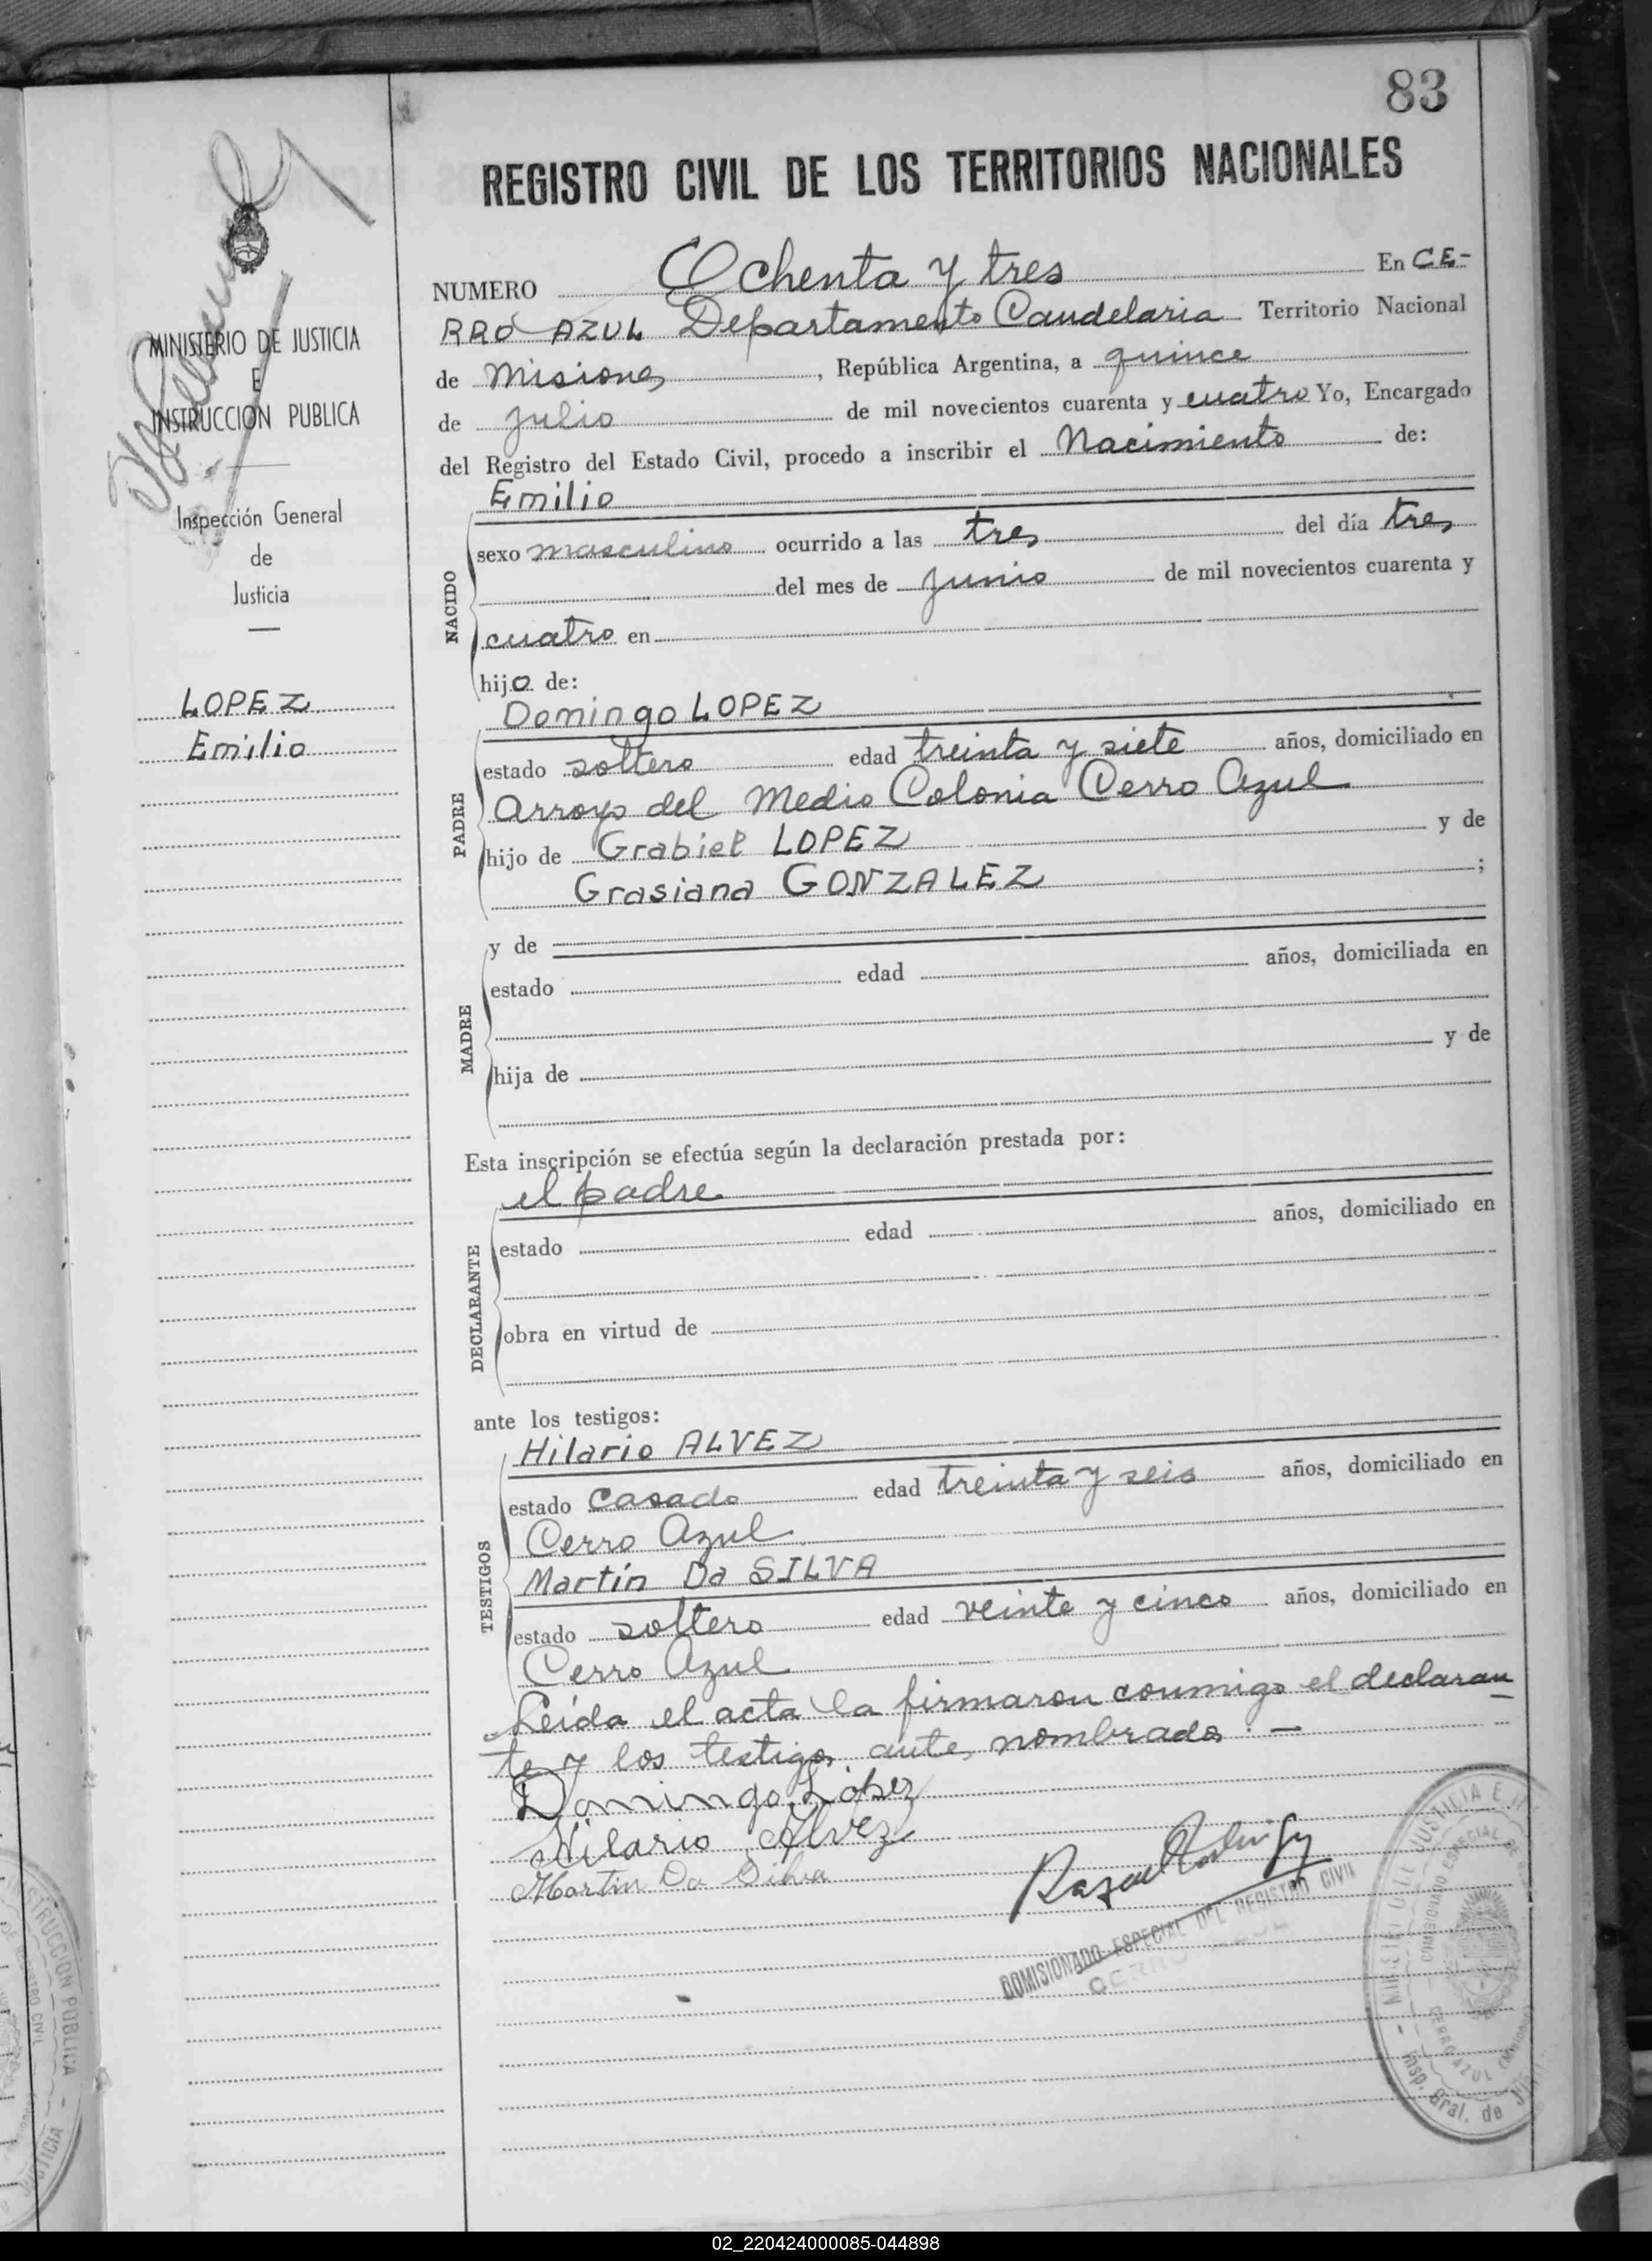 83
REGISTRO CIVIL DE LOS TERRITORIOS NACIONALES
MINISTERIO DE JUSTICIA
E
INSTRUCCION PUBLICA
Inspección General
de
Justicia
LOPEZ
Emilio
NUMERO Ochenta y tres En CE-
RRO AZUL Departamento Candelaria Territorio Nacional
de Misiones, República Argentina, a quince
de julio de mil novecientos cuarenta y cuatro Yo, Encargado
del Registro del Estado Civil, procedo a inscribir el Nacimiento de:
NACIDO
Emilio
sexo masculino ocurrido a las tres del día tres
del mes de junio de mil novecientos cuarenta y
cuatro en
hijo de:
PADRE
Domingo LOPEZ
estado soltero edad treinta y siete años, domiciliado en
Arroyo del Medio Colonia Cerro Azul
hijo de Grabiel LOPEZ y de
Grasiana GONZALEZ ;
MADRE
y de
estado edad años, domiciliada en
hija de y de
Esta inscripción se efectúa según la declaración prestada por:
DECLARANTE
el padre
estado edad años, domiciliado en
obra en virtud de
ante los testigos:
TESTIGOS
Hilario ALVEZ
estado casado edad treinta y seis años, domiciliado en
Cerro Azul
Martín Da SILVA
estado soltero edad veinte y cinco años, domiciliado en
Cerro Azul
Leída el acta la firmaron conmigo el declaran
te y los testigos antes nombrados.—
Domingo López
Hilario Alvez
Martin Da Silva
COMISIONADO ESPECIAL DEL REGISTRO CIVIL
CERRO
JUSTICIA E
COMISIONADO ESPECIAL DE
CERRO AZUL (Misiones)
Insp. Gral. de
INSTRUCCION PUBLICA
02_220424000085-044898